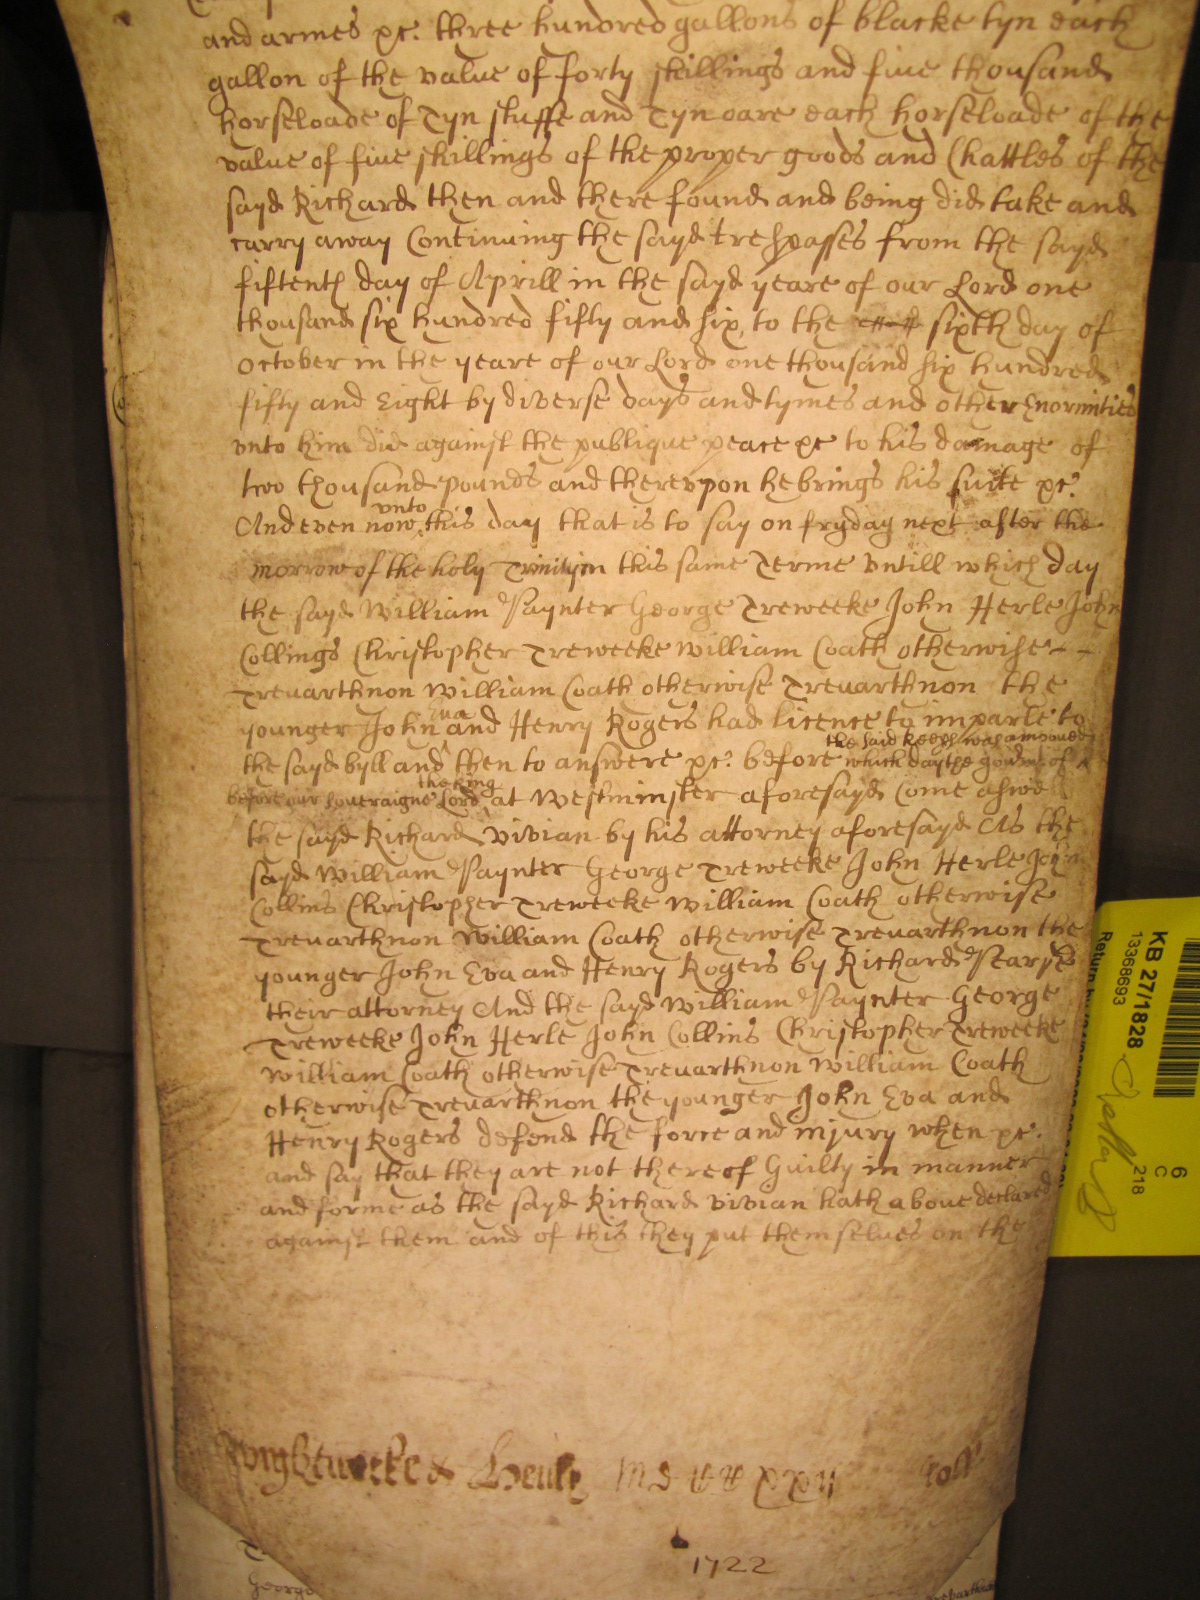 and armes &c. three hundred gallons of blacke tyn each
gallon of the value of forty shillings and five thousand
horseloade of Tyn stuffe and Tyn oare each horseloade of the
value of five shillings of the proper goods and Chattles of the
sayd Richard then and there found and being did take and
carry away Continuing the sayd trespasses from the sayd
fifteenth day of Aprill in the sayd yeare of our Lord one
thousand six hundred fifty and six, to the sixth day of
October in the yeare of our Lord one thousand six hundred
fifty and Eight by diverse days and tymes and other Enormities
unto him did against the publique peace &c to his damage of
two thousand pounds and thereupon he brings his suite &c.
unto
And even now this day that is to say on fryday next after the
morrow of the holy Trinity in this same Terme untill which day
the sayd William Paynter George Treweeke John Herle John
Collings Christopher Treweeke William Coath otherwise - -
Trevarthnon William Coath otherwise Trevarthnon the
Eva
younger John and Henry Rogers had licence to imparle to
the said Keep was amoved
the sayd byll and then to answere &c. before which day the of
the King
before our soveraigne Lord at Westminster aforesayd Come aswell
the sayd Richard Vivian by his attorney aforesayd As the
sayd William Paynter George Treweeke John Herle John
Collins Christopher Treweeke William Coath otherwise
Trevarthnon William Coath otherwise Trevarthnon the
younger John Eva and Henry Rogers by Richard Pearse
their attorney And the sayd William Paynter George
Treweeke John Herle John Collins Christopher Treweeke
William Coath otherwise Trevarthnon William Coath
otherwise Trevarthnon the younger John Eva and
Henry Rogers defend the force and injury when &c.
and say that they are not thereof Guilty in manner
and forme as the sayd Richard Vivian hath above declared
against them and of this they put themselves on the
Wightwicke & Henly
1722
KB 27/1828
13368693
6
C
218